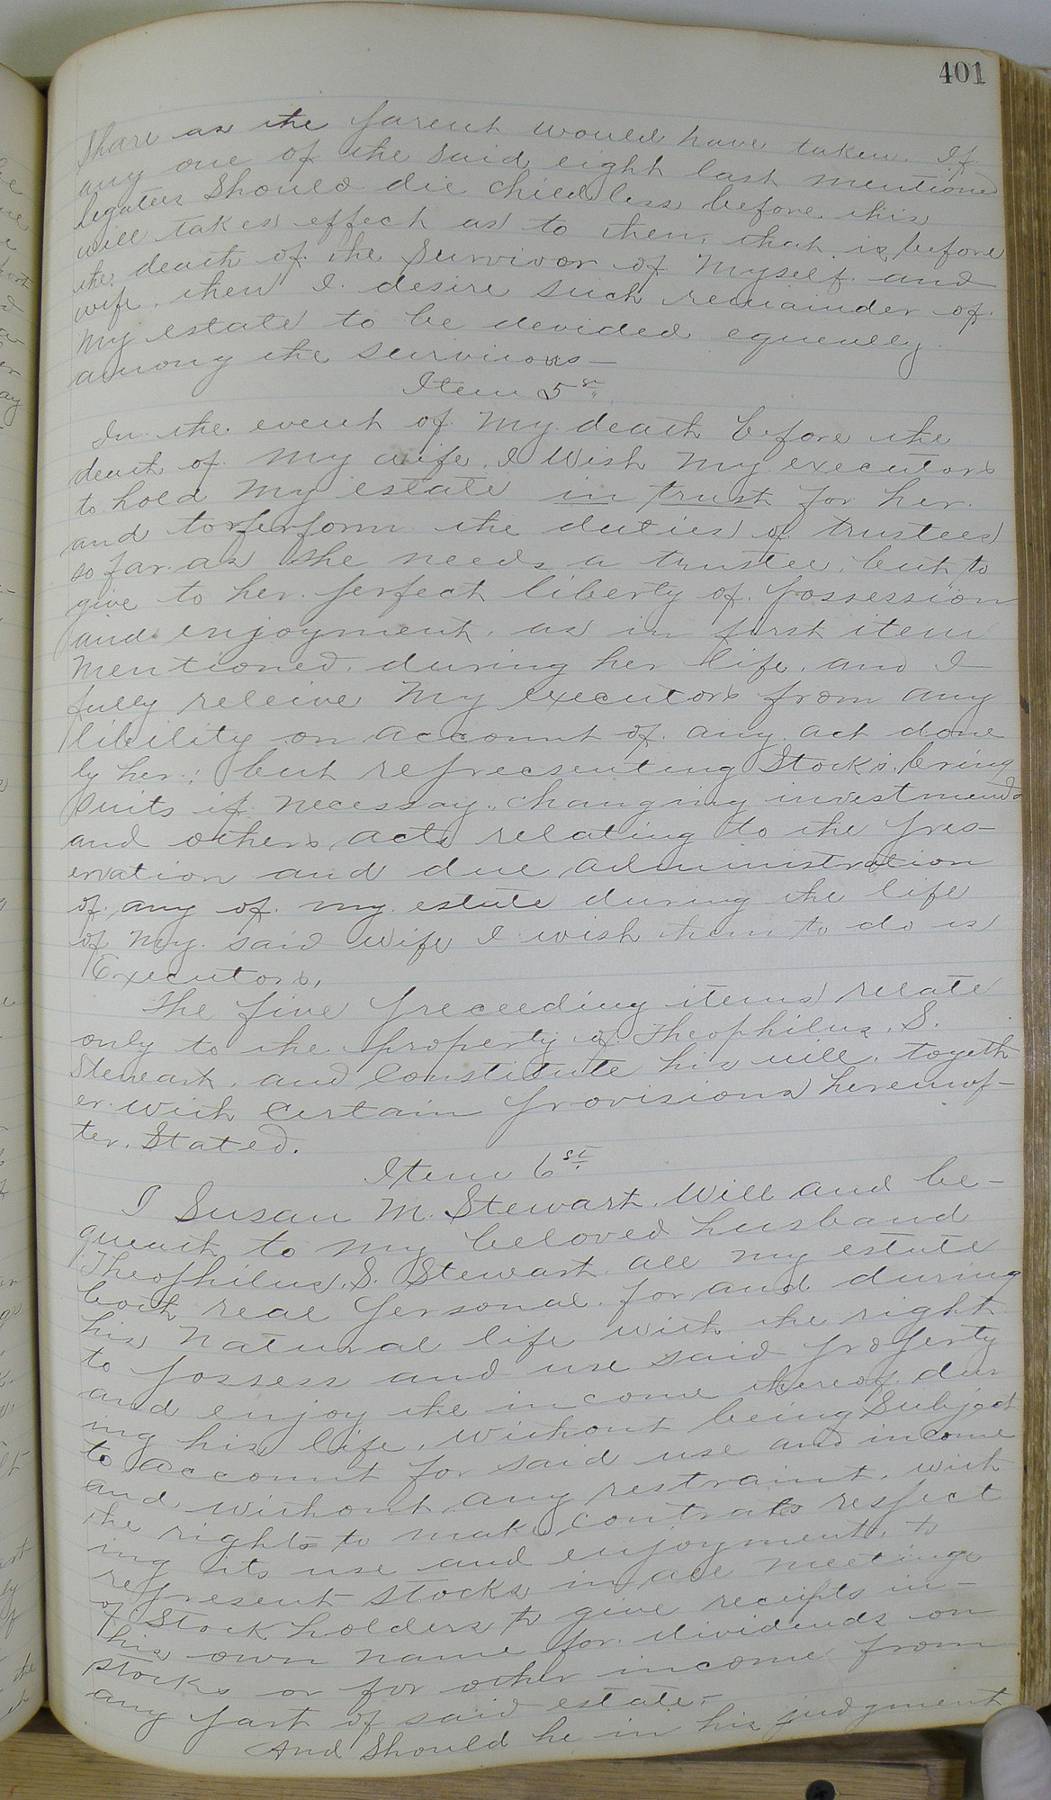 401
Share as the parent would have taken. If
any one of the said eight last mentioned
legatees Should die childless before this
will takes effect as to them, that is, before
the death of the Survivor of Myself and
wife, then I desire such remainder of
My estate to be devided equeully
among the survivors—
Item 5st
In the event of My death before the
death of My wife, I Wish My executors
to hold My estate in trust for her.
and to perform the duties of trustees
so far as she needs a trustee, but to
give to her perfect liberty of possession
and enjoyment, as in first item
Mentioned, during her life, and I
fully releive My executors from any
libility on account of any act done
by her; but refrecsenting Stocks, bring
suits if necessay, changing investments
and others acts relating to the pres-
ervation and due administration
of any of my estate during the life
of My said wife I wish them to do as
Executors,
The five preceeding items relate
only to the property of Theophilus S.
Stewart, and Constitute his will, togeth
er with Certain provisions hereinaf-
ter Stated.
Item 6st
I Susan M. Stewart, Will and be-
queath to my beloved husband
Theophilus S. Stewart all my estate
both real personal for and during
his natural life with the right
to possess and use said property
and enjoy the income thereof dur
ing his life, without being Subject
to account for said use and income
and without any restraint, with
the rights to make contrats respect
ing its use and enjoyment, to
represent stocks in all meetings
of Stock holders to give receipts in-
his own name for dividends on
stocks or for other income from
any part of said estate—
And Should he in his judgment